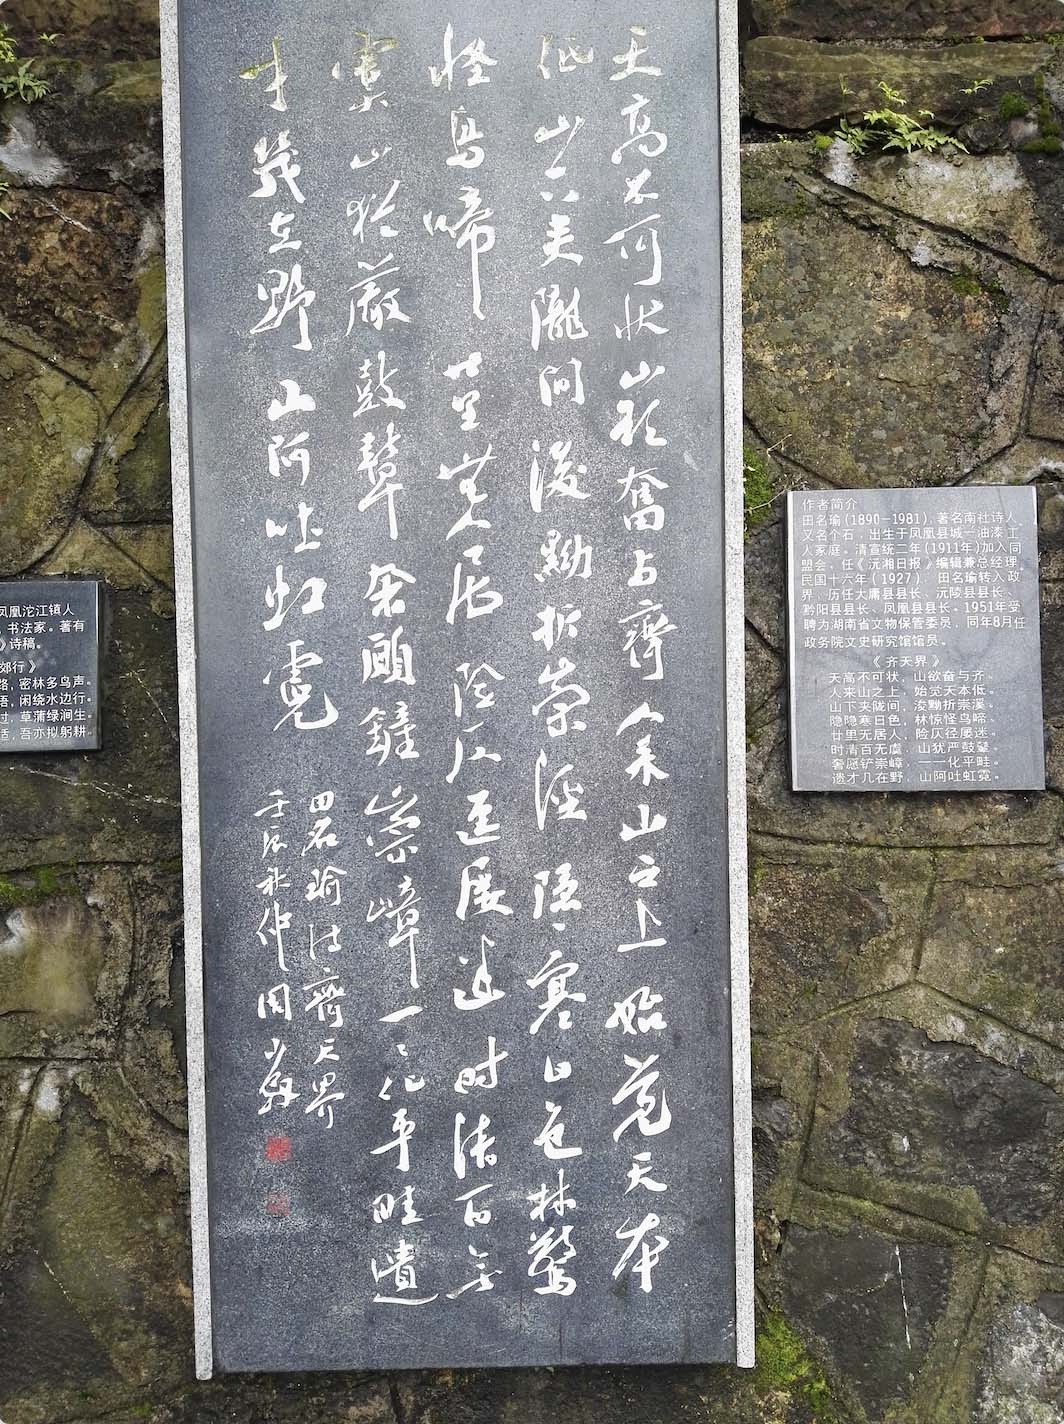 天高不可状山欲奋与齐人来山之上始觉天本
低山下夹陇间浚黝折崇溪隐隐寒日色林惊
怪鸟啼廿里无居人险仄径屡迷时清百无
虞山犹严鼓鼙奢愿铲崇嶂一一化平畦遗
才几在野山阿吐虹霓
田名瑜诗齐天界
壬辰秋仲
作者简介
田名瑜(1890-1981),著名南社诗人,
又名个石,出生于凤凰县城一油漆工
人家庭。清宣统二年(1911年)加入同
盟会,任《沅湘日报》编辑兼总经理,
民国十六年(1927),田名瑜转入政
界,历任大庸县县长、沅陵县县长、
黔阳县县长、凤凰县县长。1951年受
聘为湖南省文物保管委员,同年8月任
政务院文史研究馆馆员。
《齐天界》
天高不可状,山欲奋与齐。
人来山之上,始觉天本低。
山下夹陇间,浚黝折崇溪。
隐隐寒日色,林惊怪鸟啼。
廿里无居人,险仄径屡迷。
时清百无虞,山犹严鼓鼙。
奢愿铲崇嶂,一一化平畦。
遗才几在野,山阿吐虹霓。
凤凰沱江镇人
,书法家。著有
》诗稿。
郊行》
路,密林多鸟声。
语,闲绕水边行。
过,草蒲绿涧生。
适,吾亦拟躬耕。